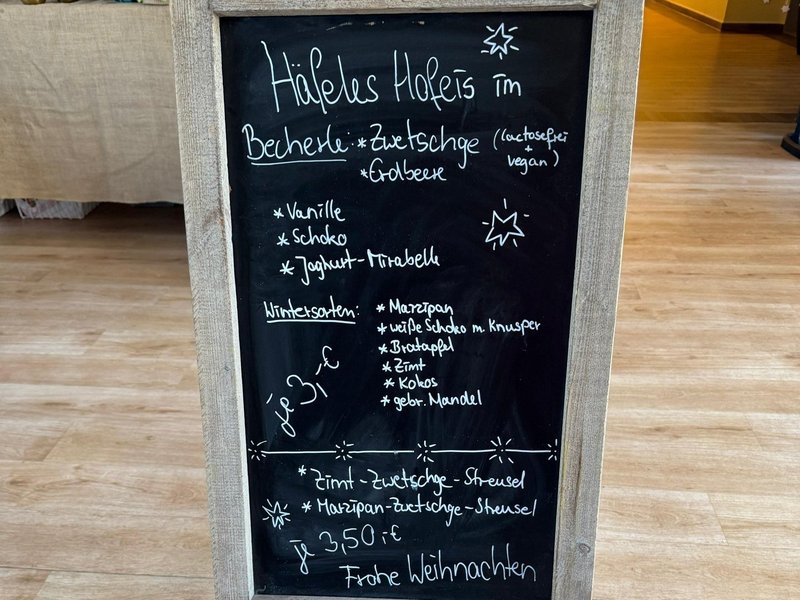 Häfeles Hofeis im
Becherle: *Zwetschge (lactosefrei + vegan)
*Erdbeere
*Vanille
*Schoko
*Joghurt-Mirabelle
Wintersorten: *Marzipan
*weiße Schoko m. Knusper
*Bratapfel
*Zimt
*Kokos
*gebr. Mandel
je 3,-€
*Zimt-Zwetschge-Streusel
*Marzipan-Zwetschge-Streusel
je 3,50,-€
Frohe Weihnachten